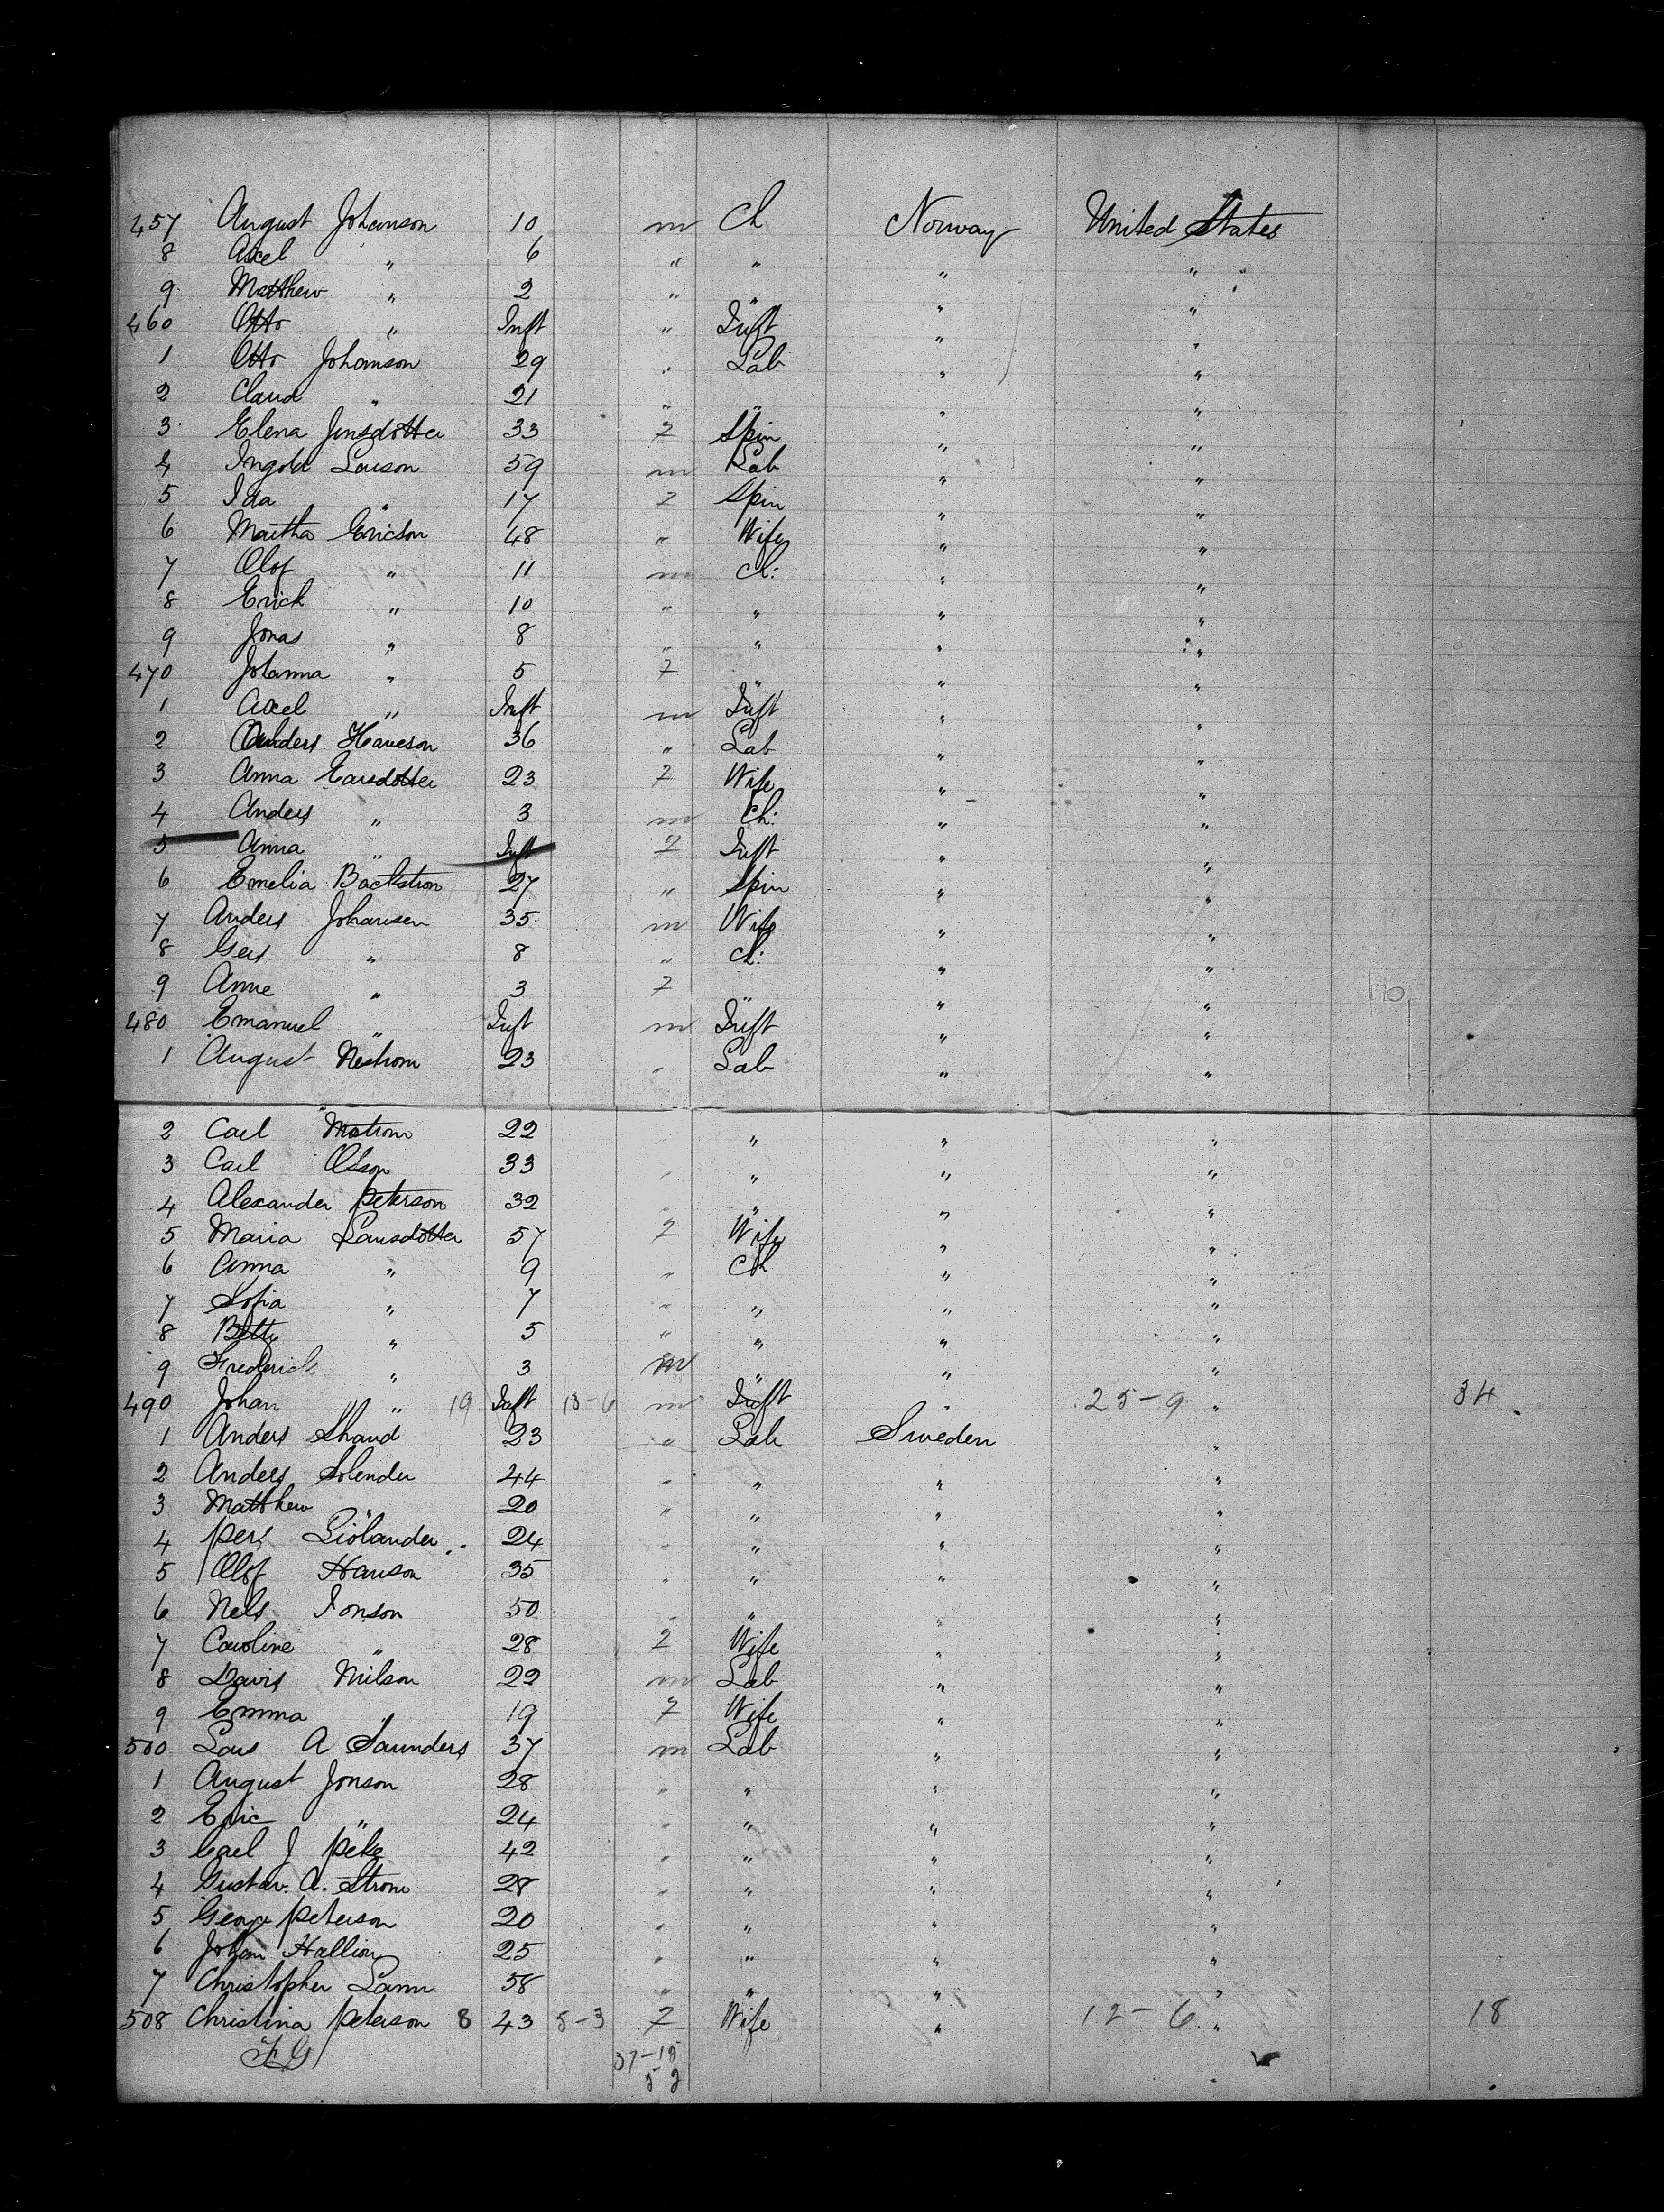 457 August Johanson 10 m Ch Norway United States
8 Axel " 6 " " " "
9 Matthew " 2 " " " "
460 Otto " Inft " Inft " "
1 Otto Johanson 29 " Lab " "
2 Claud " 21 " " " "
3 Elena Jensdotter 33 7 Spin " "
4 Ingold Larson 59 m Lab " "
5 Ida " 17 7 Spin " "
6 Martha Ericson 48 " Wife " "
7 Olof " 11 m Ch: " "
8 Erick " 10 " " " "
9 Jonas " 8 " " " "
470 Johanna " 5 7 " " "
1 Axel " Inft m Inft " "
2 Anders Hanson 36 " Lab " "
3 Anna Larsdotter 23 7 Wife " "
4 Anders " 3 m Ch: " "
5 Anna " Inft 7 Inft " "
6 Emelia Backstrom 27 " Spin " "
7 Anders Johansen 35 m Wife " "
8 " 8 " Ch: " "
9 Anne " 3 7 " "
480 Emanuel " Inft m Inft " "
1 August Nestrom 23 " Lab " "
2 Carl 22 " " " "
3 Carl Olson 33 " " " "
4 Alexander Peterson 32 " " " "
5 Maria Larsdotter 57 7 Wife " "
6 Anna " 9 " Ch " "
7 Sofia " 7 " " " "
8 Betty " 5 " " " "
9 Frederick " 3 m " " "
490 Johan " 19 Inft 13-6 m Inft " 25-9 " 34
1 Anders Shand 23 " Lab Sweden "
2 Anders Solender 44 " " " "
3 Matthew " 20 " " " "
4 Pers Liolander 24 " " " "
5 Olof Hanson 35 " " " "
6 Nels Jonson 50 " " " "
7 Caroline " 28 7 Wife " "
8 Davis Nilson 22 m Lab " "
9 Emma " 19 7 Wife " "
500 Lars A Saunders 37 m Lab " "
1 August Jonson 28 " " " "
2 Eric " 24 " " " "
3 Carl J Peke 42 " " " "
4 Gustav. A. Strom 28 " " " "
5 George Peterson 20 " " " "
6 Johan Hallion 25 " " " "
7 Christopher Lann 58 " " " "
508 Christina Peterson 8 43 5-3 7 Wife " 12-6 " 18
37-18
5 2